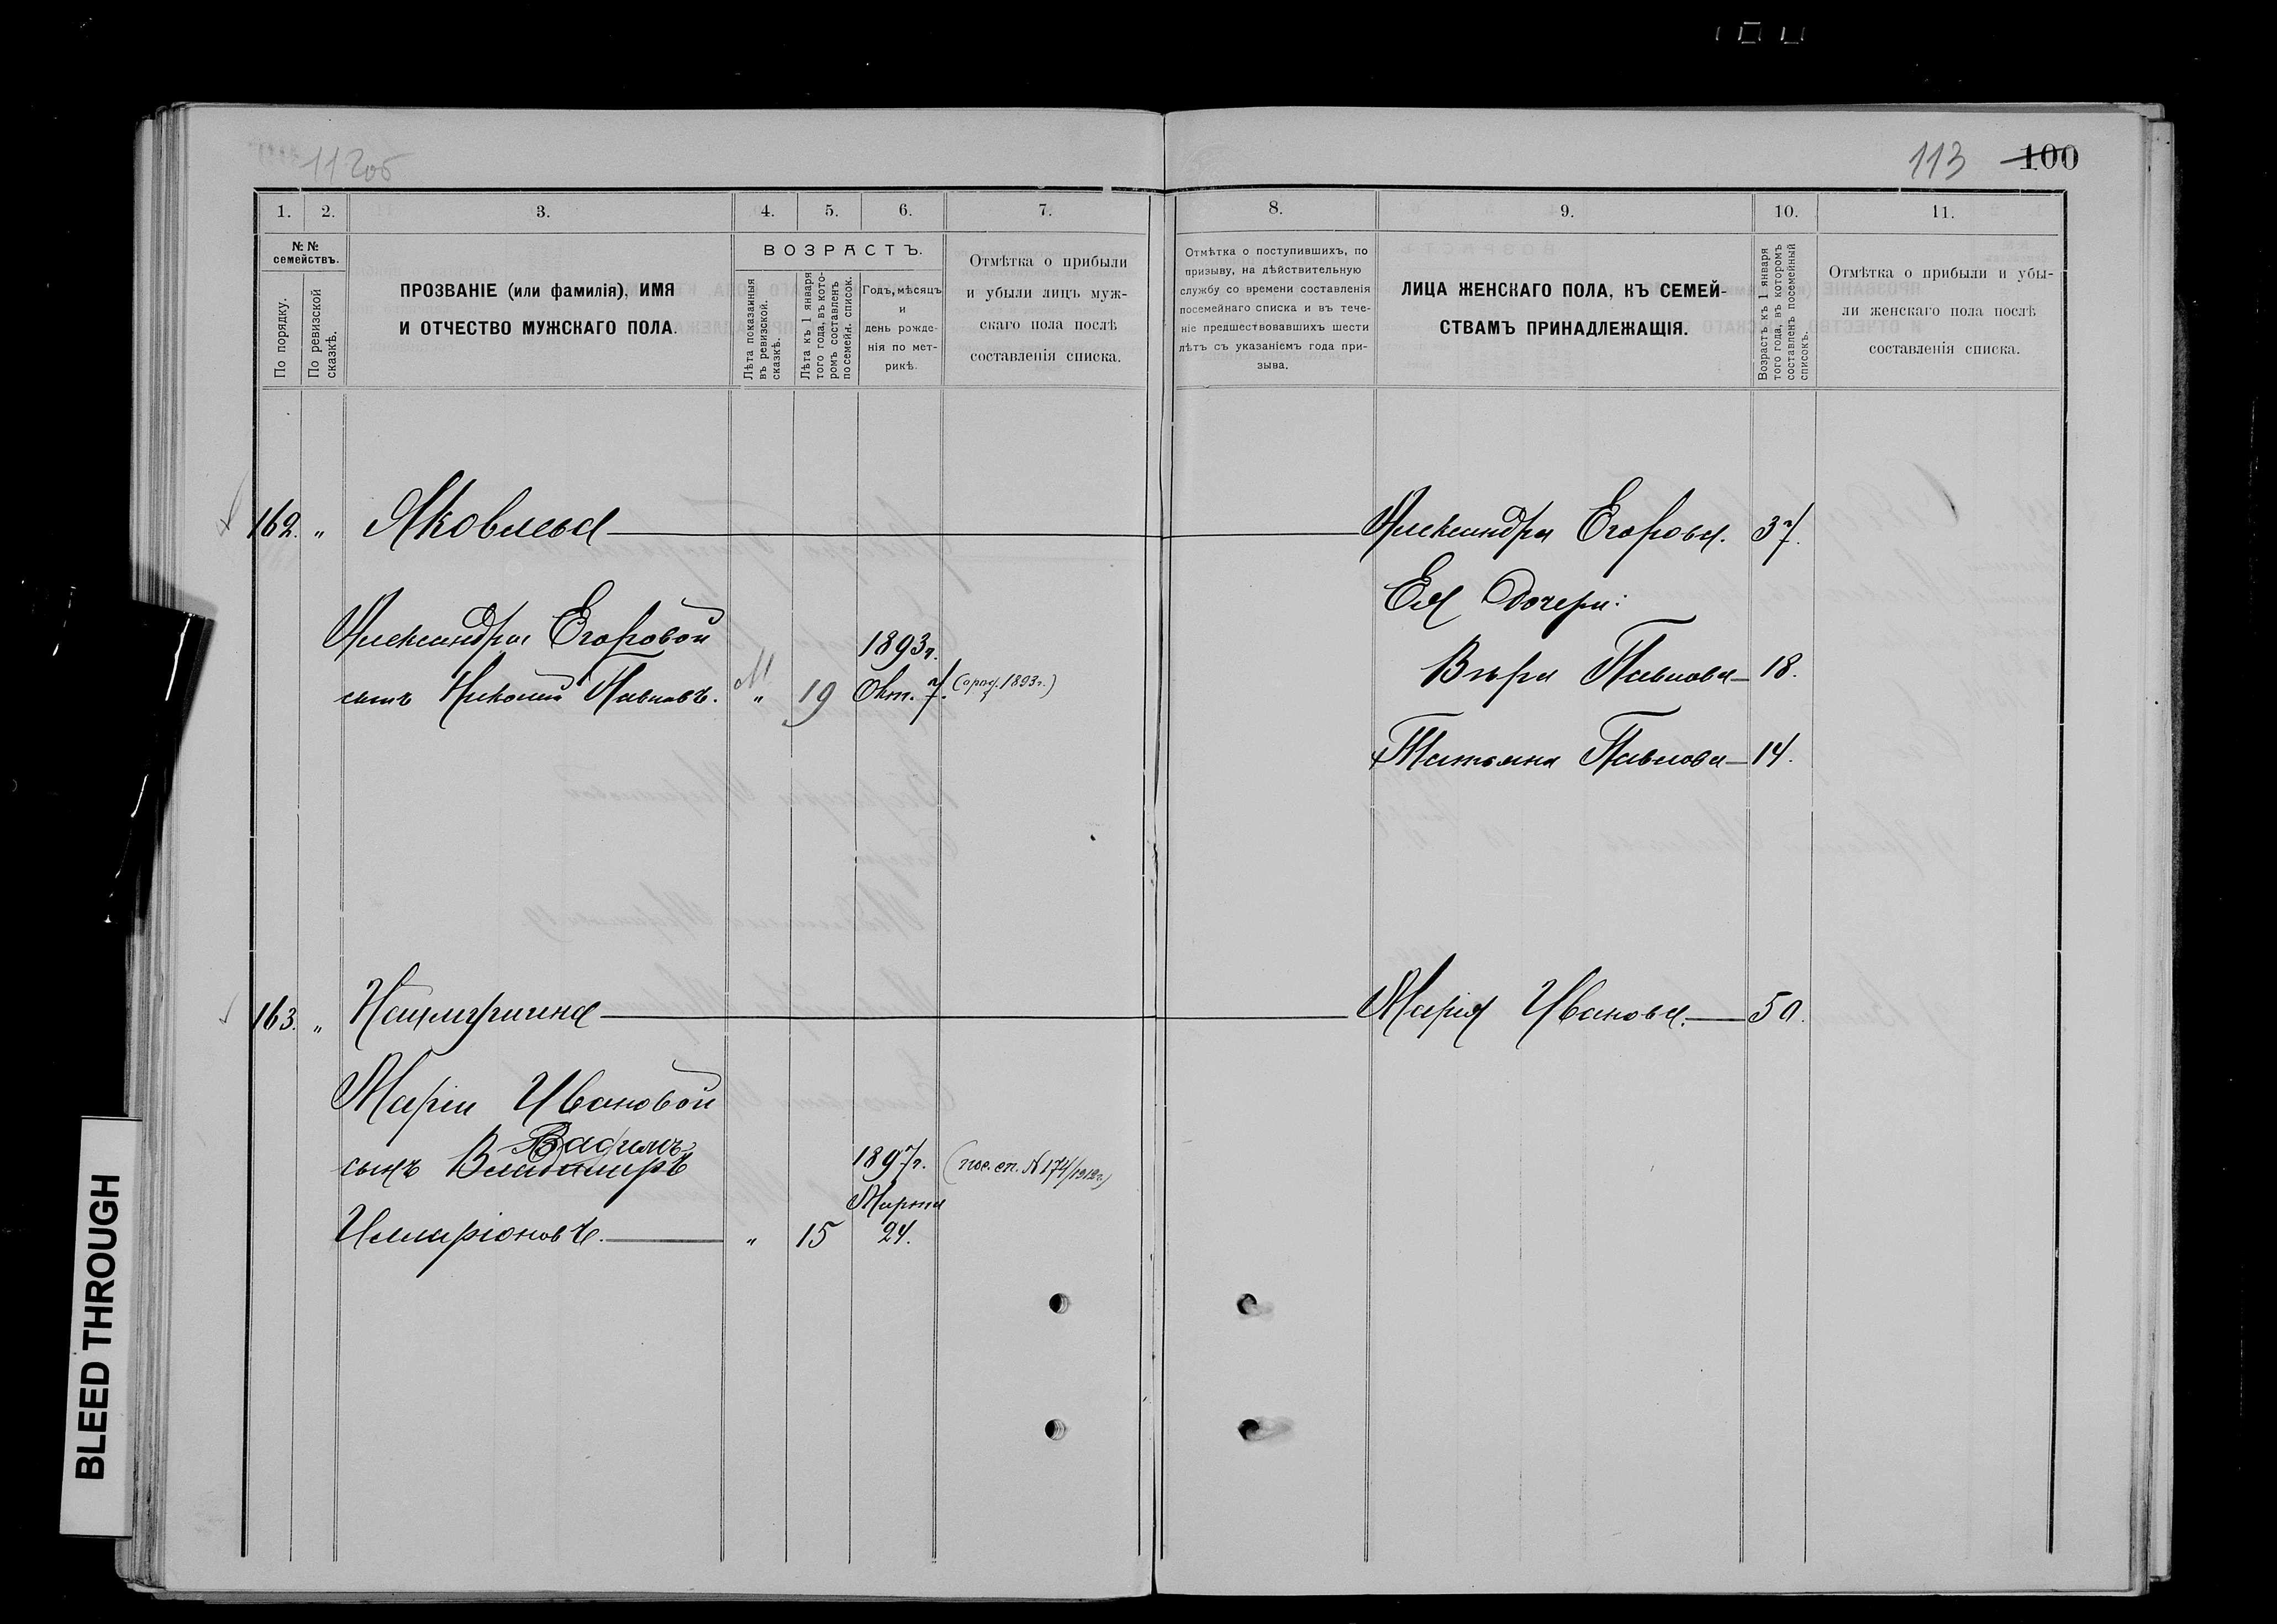 112об
113 100
1. 2. 3. 4. 5. 6. 7. 8. 9. 10. 11.
№№ семействъ.
По порядку.
По ревизской сказкѣ.
ПРОЗВАНІЕ (или фамилія), ИМЯ
И ОТЧЕСТВО МУЖСКАГО ПОЛА.
ВОЗРАСТЪ.
Лѣта показанныя
въ ревизской
сказкѣ.
Лѣта къ 1 января
того года, въ кото-
ромъ составленъ
посемейн. список.
Годъ, мѣсяцъ
и
день рожде-
нія по мет-
рикѣ.
Отмѣтка о прибыли
и убыли лицъ муж-
скаго пола послѣ
составленія списка.
Отмѣтка о поступившихъ, по
призыву, на дѣйствительную
службу со времени составленія
посемейнаго списка и въ тече-
ніе предшествовавшихъ шести
лѣтъ съ указаніемъ года при-
зыва.
ЛИЦА ЖЕНСКАГО ПОЛА, КЪ СЕМЕЙ-
СТВАМЪ ПРИНАДЛЕЖАЩІЯ.
Возрастъ къ 1 января
того года, въ которомъ
составленъ посемейный
списокъ.
Отмѣтка о прибыли и убы-
ли женскаго пола послѣ
составленія списка.
162. " Яковлева Александра Егорова. 37.
Ея дочери:
Александры Егоровой 1893г.
сынъ Николай Павловъ. " 19 Окт. 7. Вѣра Павлова 18.
Татьяна Павлова 14.
163. " Марія Иванова. 50.
Маріи Ивановой
Вадимъ
сынъ Владимиръ 1897г. (пос. сп. №174/1912г.)
Марта
Илларіоновъ. " 15 24.
BLEED THROUGH